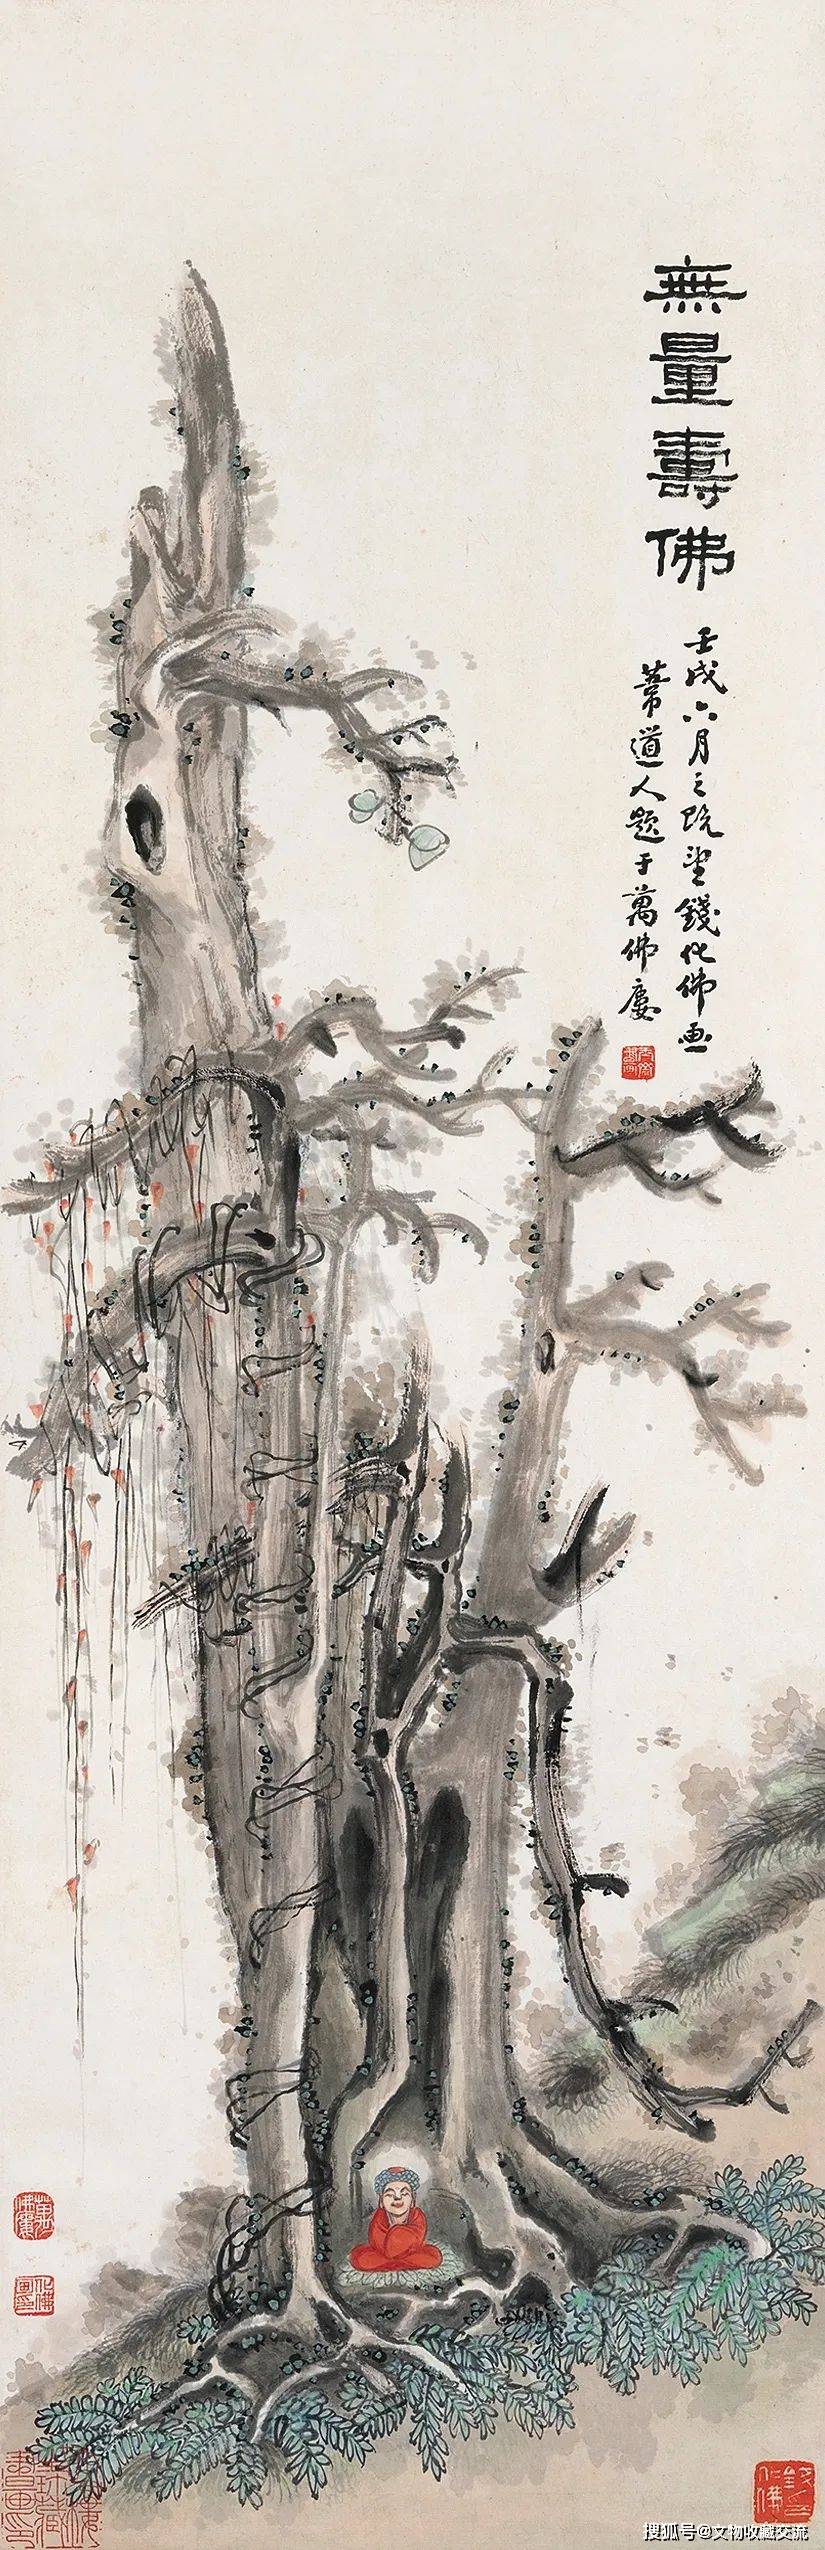 無量壽佛
壬戌六月之既望錢化佛画
道人題于萬佛廔
萬佛廔
化佛畫印
搜狐号@文物收藏交流